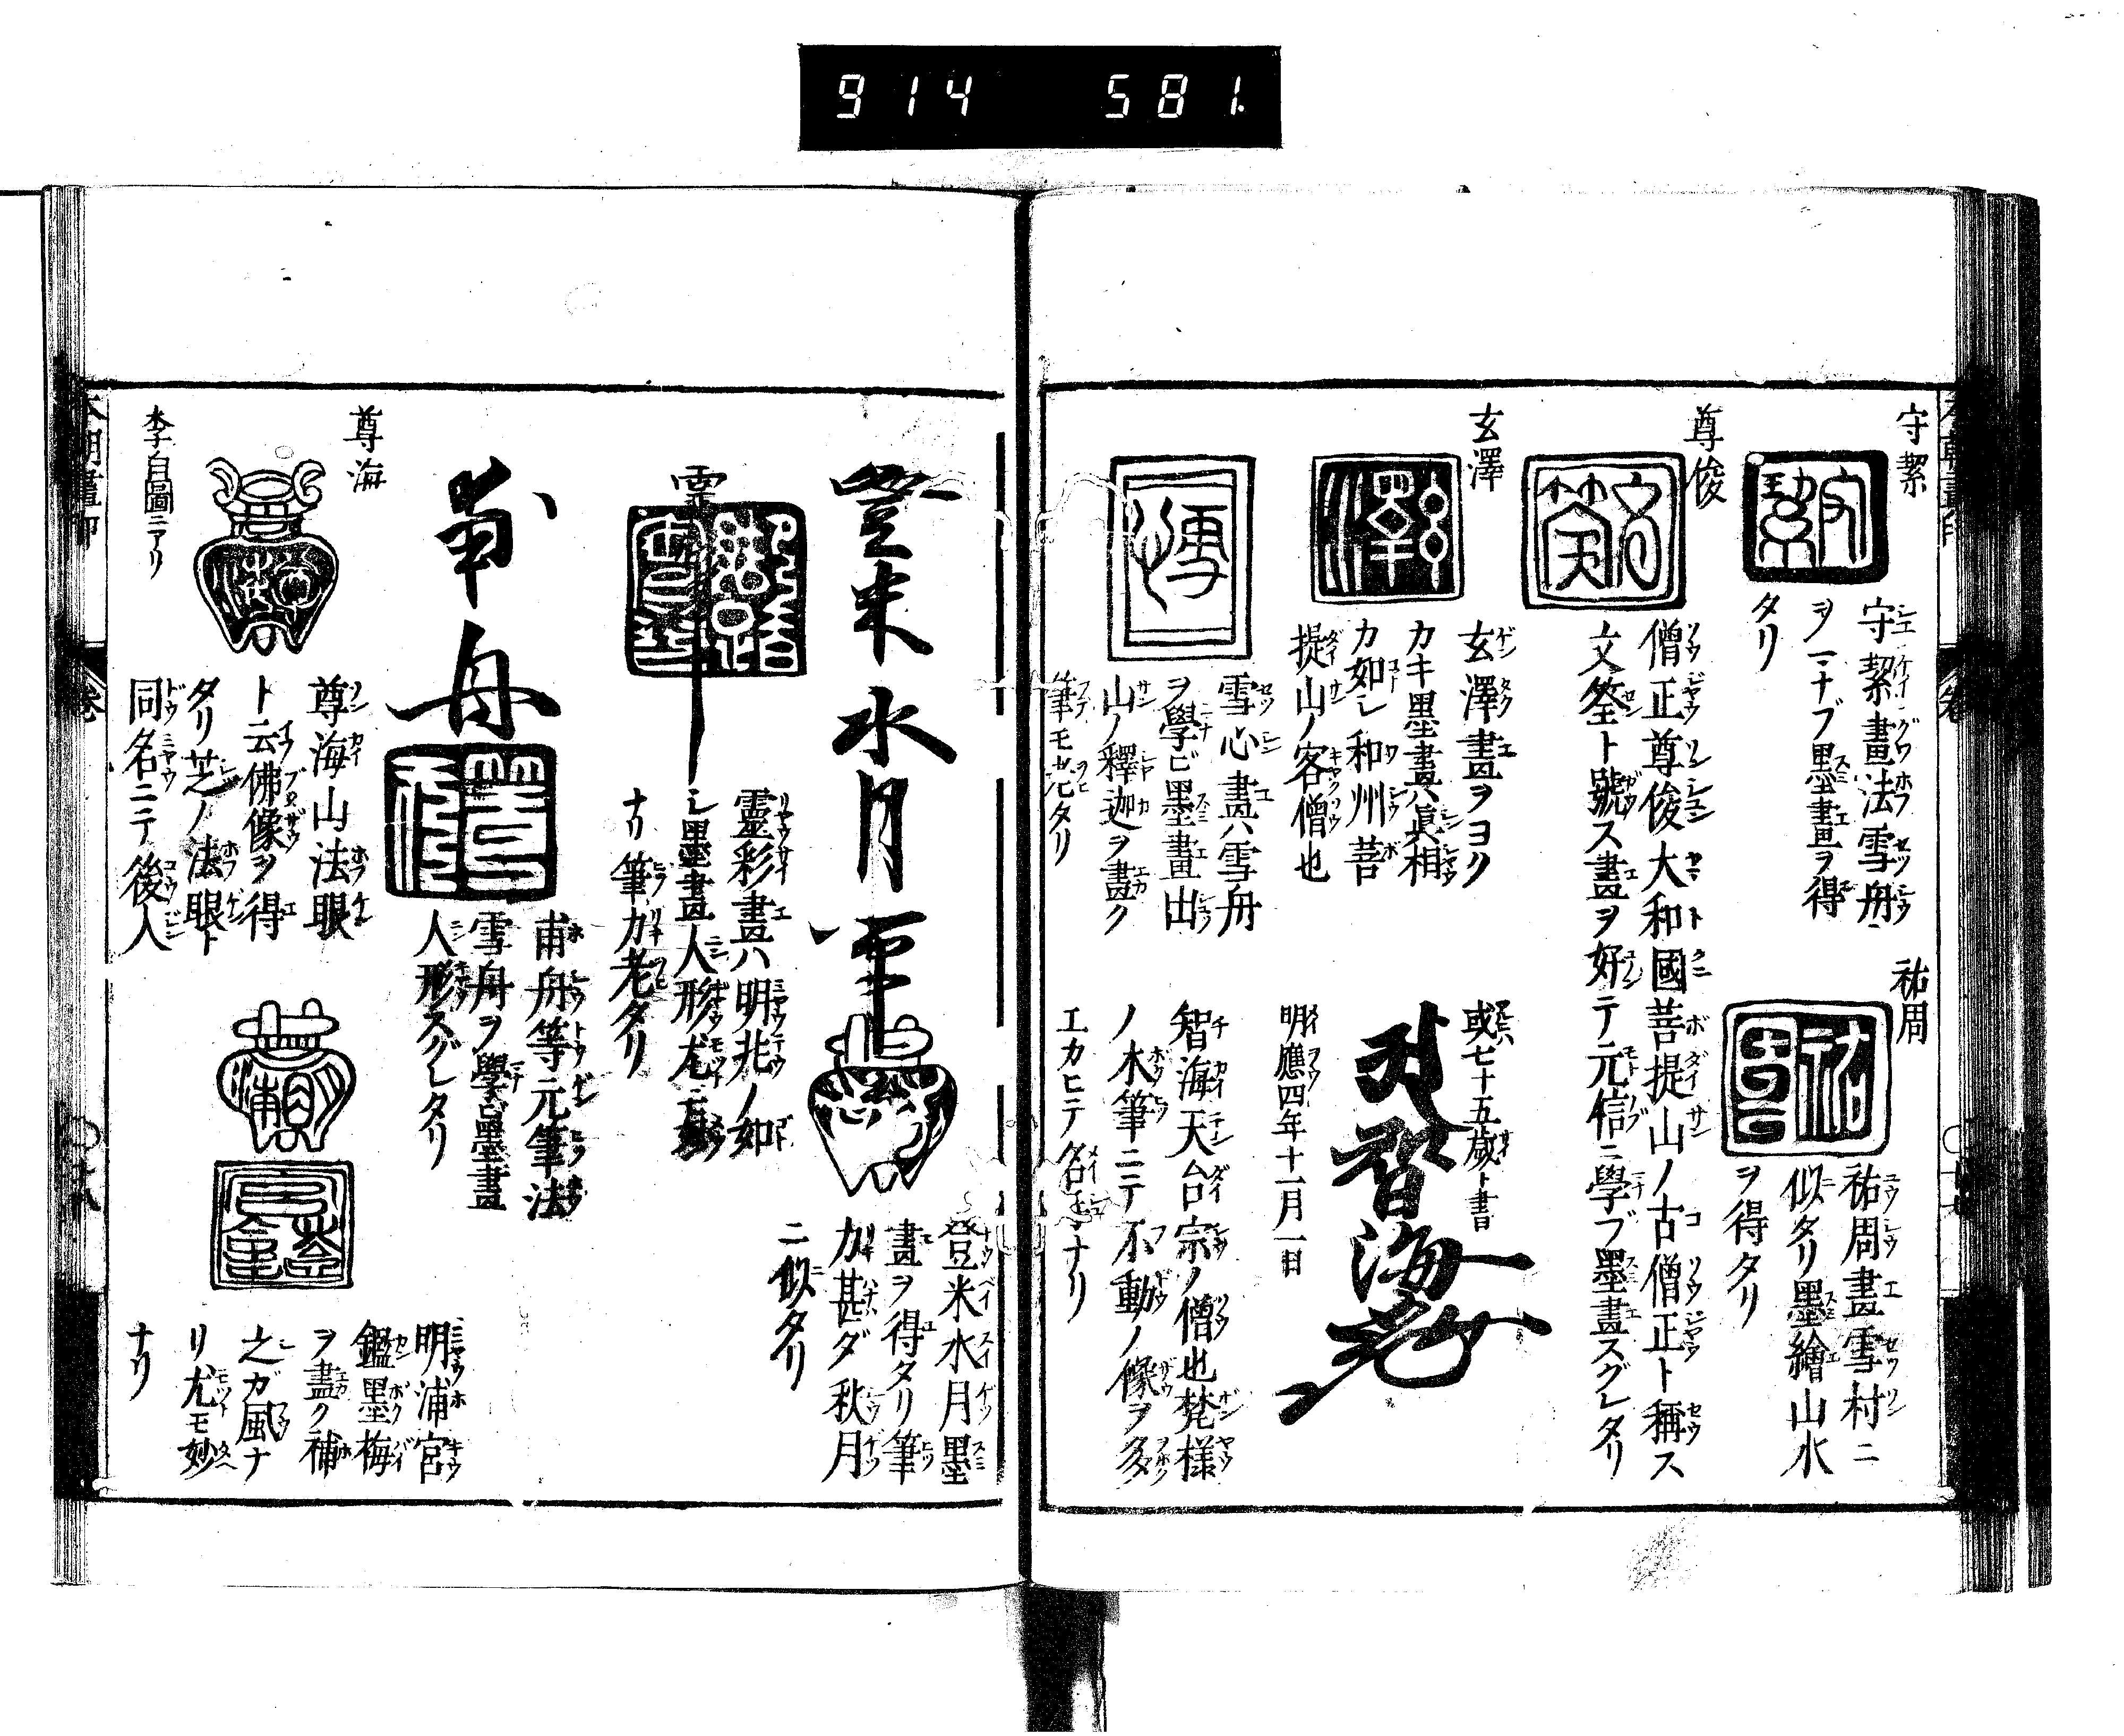 914 581
守絜
守絜畫法雪舟
ヲマナブ墨畫ヲ得
タリ
祐周
祐周畫雪村ニ
似タリ墨繪山水
ヲ得タリ
尊俊
僧正尊俊大和國菩提山ノ古僧正ト稱ス
文筌ト號ス畫ヲ好テ元信ニ學ブ墨畫スグレタリ
玄澤
玄澤畫ヲヨク
カキ墨畫ハ眞相
カ如シ和州菩
提山ノ客僧也
或七十五歳ト書
智海
明應四年十一月一日
雪心畫ハ雪舟
ヲ學ビ墨畫出
山ノ釋迦ヲ畫ク
筆モ老タリ
智海天台宗ノ僧也梵様
ノ木筆ニテ不動ノ像ヲ多
エカヒテ名ナリ
登米水月
登米水月墨
畫ヲ得タリ筆
力甚ダ秋月
ニ似タリ
靈
靈彩畫ハ明兆ノ如
シ墨畫人形尤モ妙
ナリ筆力老タリ
甫舟
甫舟等元筆法
雪舟ヲ學ビ墨畫
人形スグレタリ
尊海
尊海山法眼
ト云佛像ヲ得
タリ芝ノ法眼ト
同名ニテ後人
李白圖ニアリ
明浦宮
鑑墨梅
ヲ畫ク補
之ガ風ナ
リ尤モ妙
ナリ